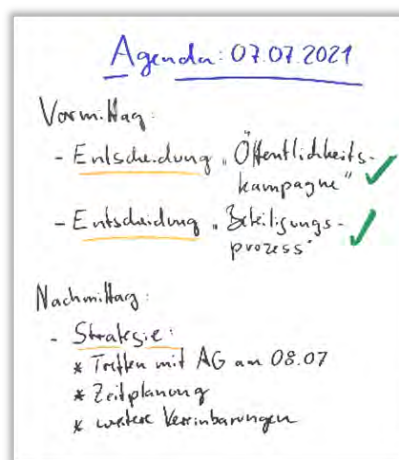 Agenda: 07.07.2021
Vormittag:
- Entscheidung „Öffentlichkeits-
kampagne" ✓
- Entscheidung „Beteiligungs-
prozess" ✓
Nachmittag:
- Strategie:
* Treffen mit AG am 08.07
* Zeitplanung
* weitere Vereinbarungen